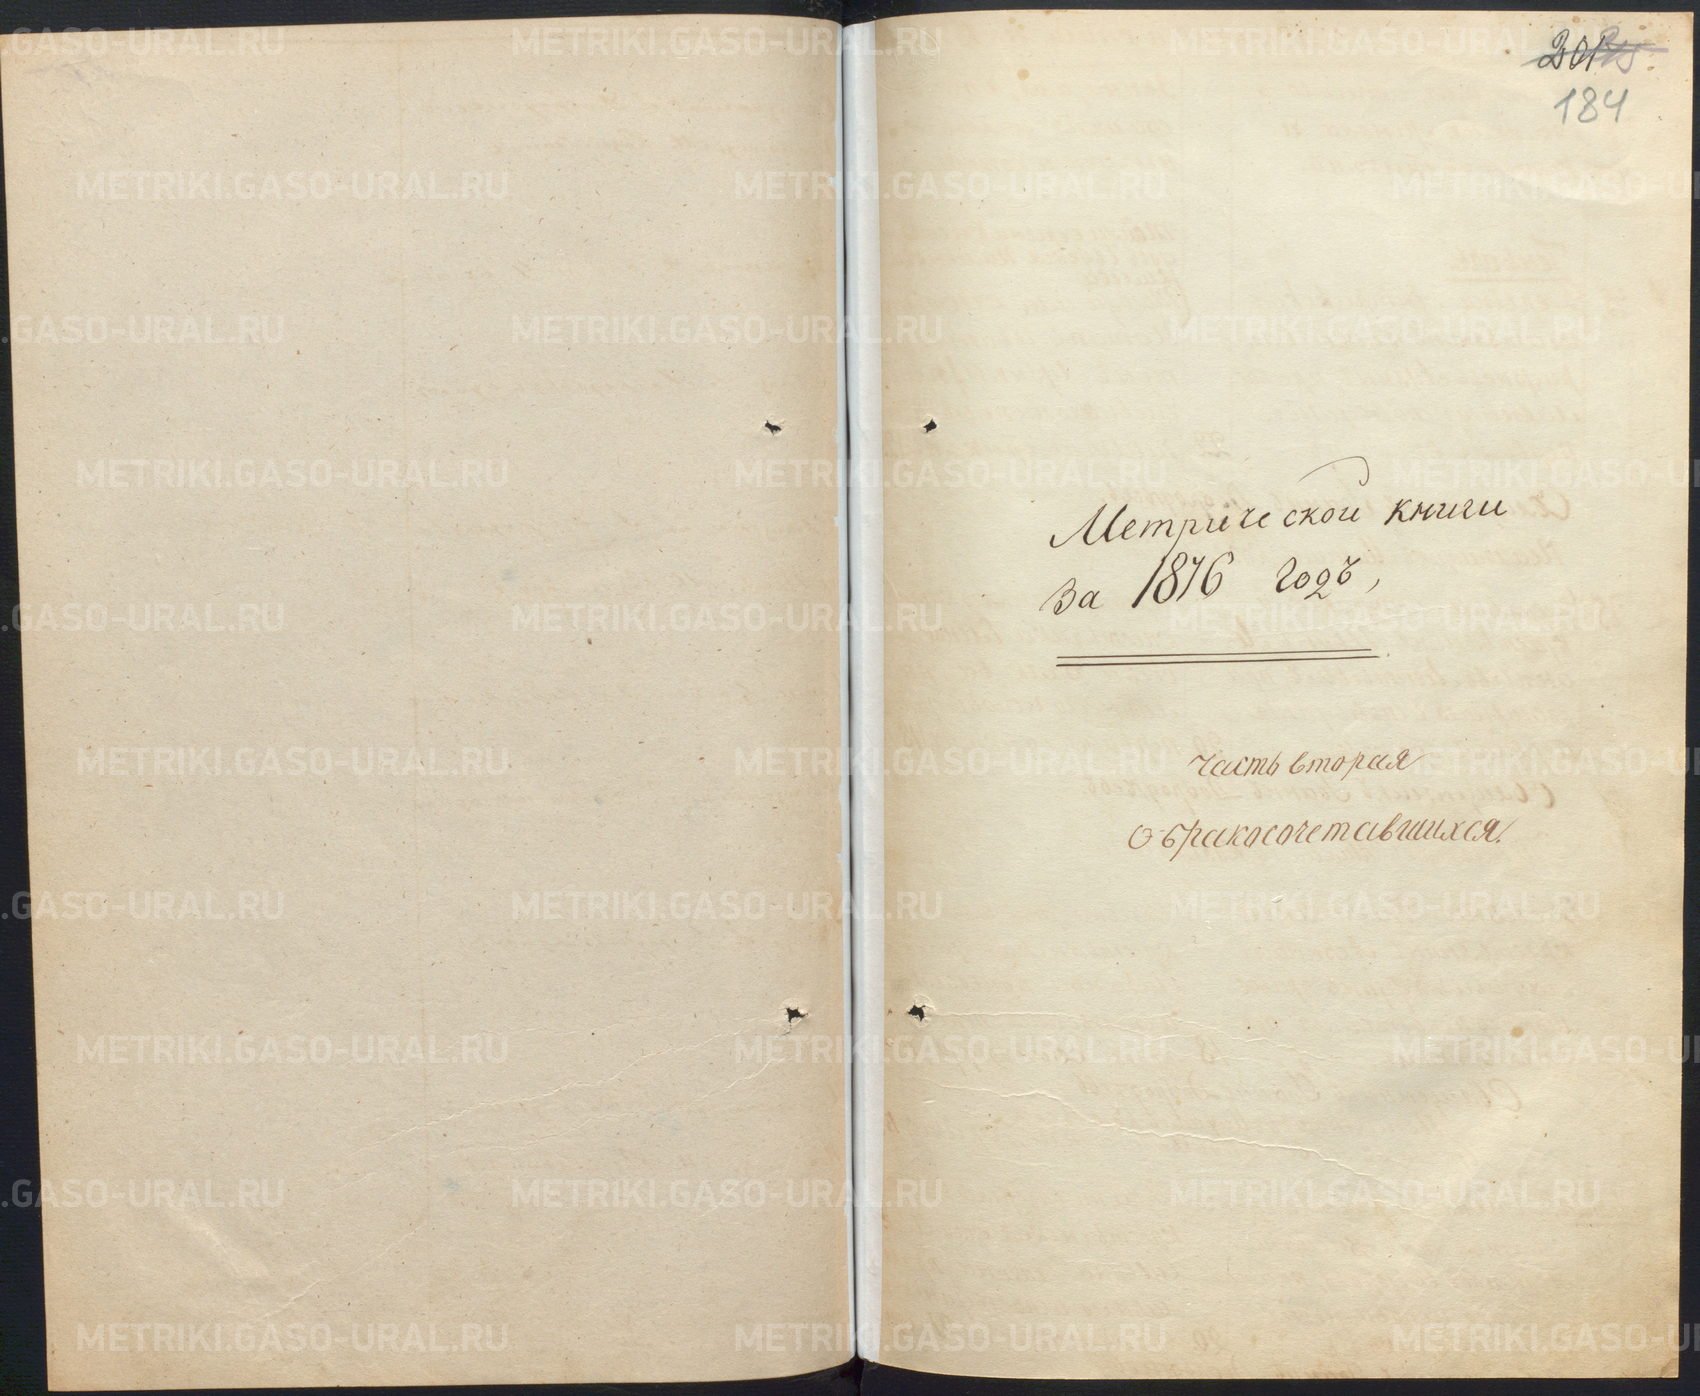 184
Метрической книги
за 1876 годъ,
часть вторая
о бракосочетавшихся.
METRIKI.GASO-URAL.RU